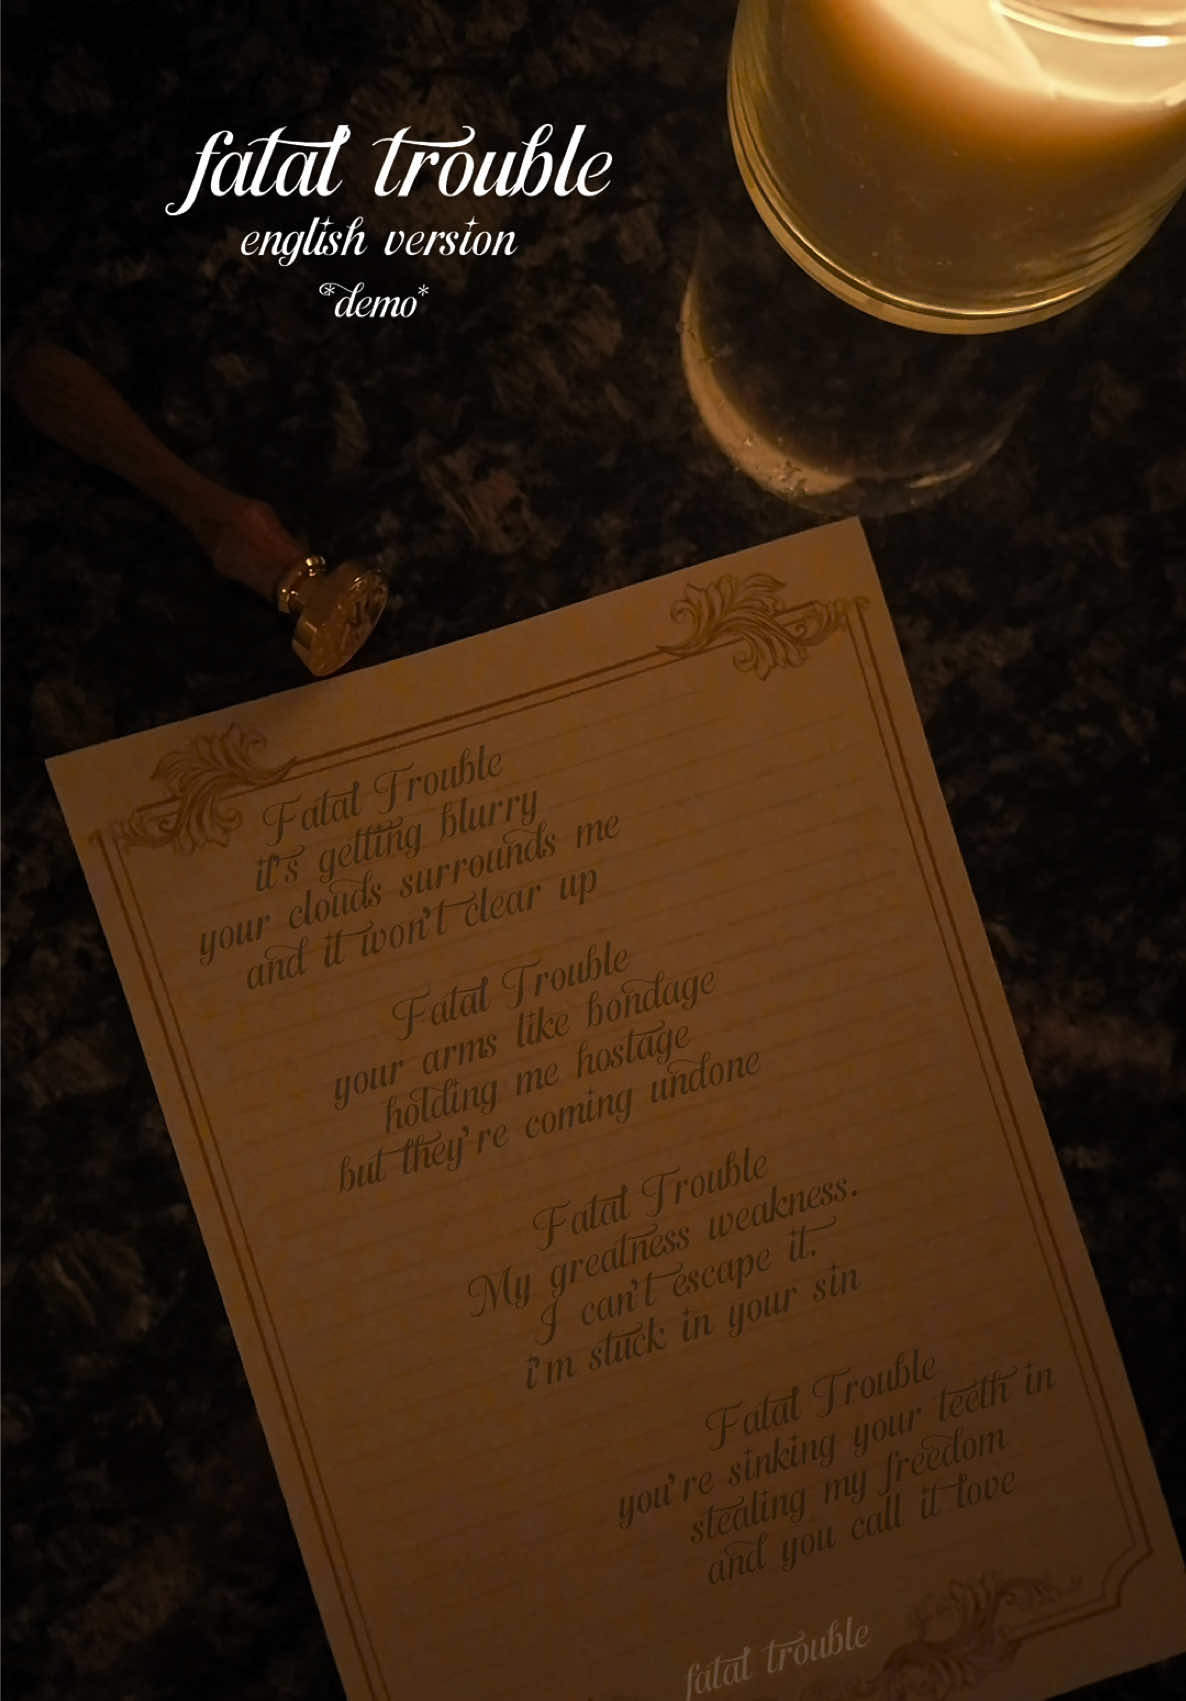 fatal trouble
english version
*demo*
Fatal Trouble
it's getting blurry
your clouds surrounds me
and it won't clear up
Fatal Trouble
your arms like bondage
holding me hostage
but they're coming undone
Fatal Trouble
My greatness weakness.
I can't escape it.
i'm stuck in your sin
Fatal Trouble
you're sinking your teeth in
stealing my freedom
and you call it love
fatal trouble